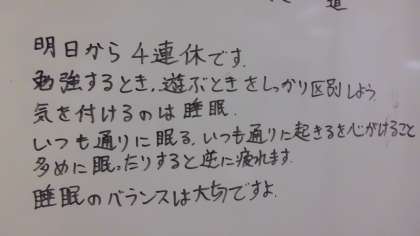 道
明日から4連休です.
勉強するとき,遊ぶときをしっかり区別しよう
気を付けるのは睡眠.
いつも通りに眠る,いつも通りに起きるを心がけること
多めに眠ったりすると逆に疲れます.
睡眠のバランスは大切ですよ.